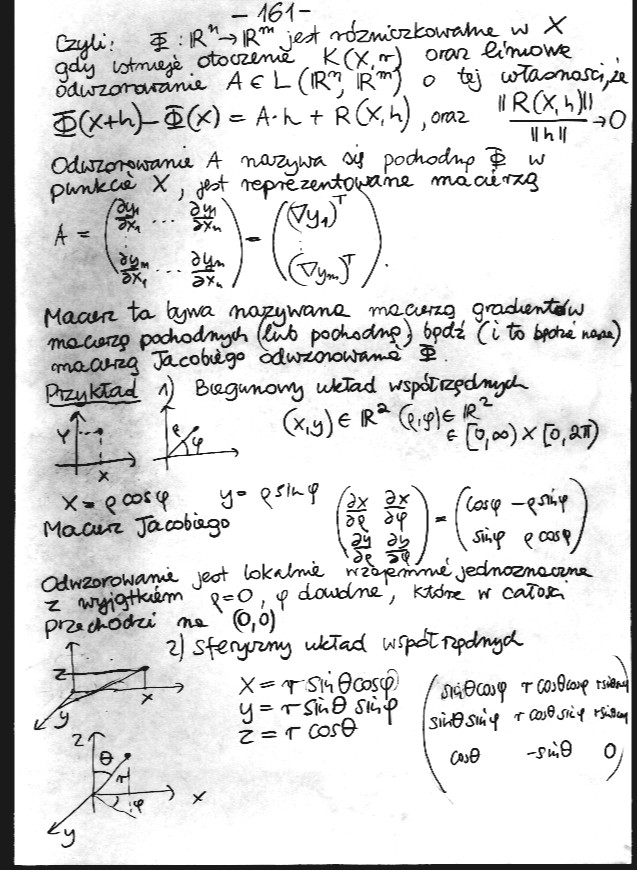 - 161 -
Czyli: Φ : ℝⁿ → ℝᵐ jest różniczkowalne w X
gdy istnieje otoczenie K(X, r) oraz liniowe
odwzorowanie A ∈ L(ℝⁿ, ℝᵐ) o tej własności, że
Φ(X+h) - Φ(X) = A·h + R(X,h), oraz ||R(X,h)|| / ||h|| → 0
Odwzorowanie A nazywa się pochodną Φ w
punkcie X, jest reprezentowane macierzą
A = (∂y₁/∂x₁ ... ∂y₁/∂xₙ ; ∂yₘ/∂x₁ ... ∂yₘ/∂xₙ) = ((∇y₁)ᵀ ⋮ (∇yₘ)ᵀ).
Macierz ta bywa nazywana macierzą gradientów
macierzą pochodnych (lub pochodną) bądź (i to będzie nasze)
macierzą Jacobiego odwzorowania Φ.
Przykład 1) Biegunowy układ współrzędnych
(x,y) ∈ ℝ² (ρ,φ) ∈ ℝ²
∈ [0,∞) × [0,2π)
y
x
ρ
φ
x = ρ cosφ y = ρ sinφ
Macierz Jacobiego (∂x/∂ρ ∂x/∂φ ; ∂y/∂ρ ∂y/∂φ) = (cosφ -ρ sinφ ; sinφ ρ cosφ)
Odwzorowanie jest lokalnie wzajemnie jednoznaczne
z wyjątkiem ρ=0, φ dowolne, które w całości
przechodzi na (0,0)
2) Sferyczny układ współrzędnych
z
x
y
x = r sinθ cosφ
y = r sinθ sinφ
z = r cosθ
(sinθ cosφ r cosθ cosφ
sinθ sinφ r cosθ sinφ
cosθ -sinθ 0)
z
θ
r
φ
x
y